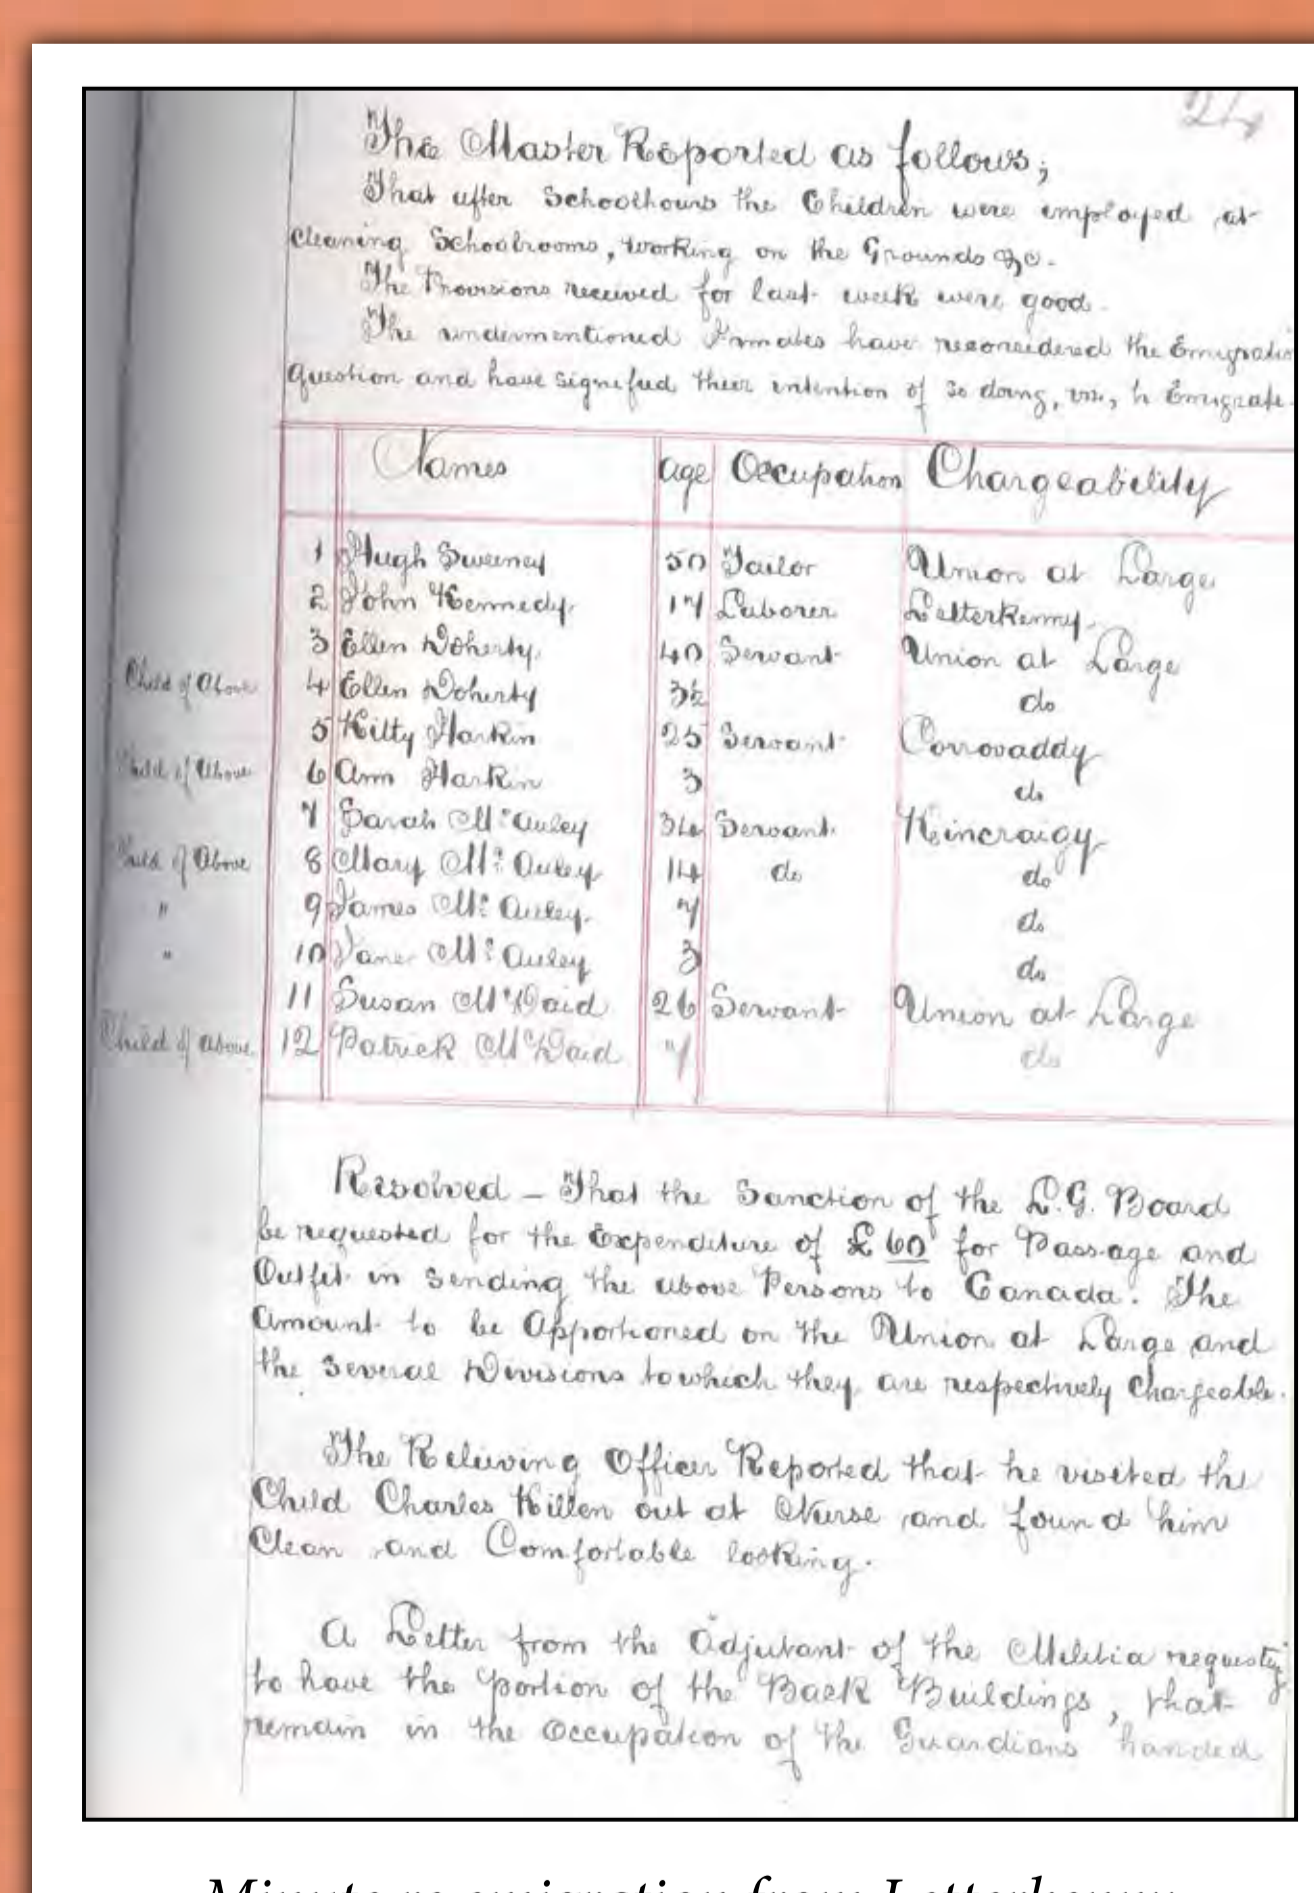 24
The Master Reported as follows;
That after Schoolhours the Children were employed at
Cleaning Schoolrooms, working on the Grounds &c.
The Provisions received for last week were good.
The undermentioned Inmates have reconsidered the Emigratio
Question and have signified their intention of so doing, viz, to Emigrate.
Names age Occupation Chargeability
1 Hugh Sweeney 50 Tailor Union at Large
2 John Kennedy 17 Laborer Letterkenny.
3 Ellen Doherty 40 Servant Union at Large
Child of Above 4 Ellen Doherty 3½ do
5 Kitty Harkin 25 Servant Corrovaddy
Child of Above 6 Ann Harkin 3 do
7 Sarah McAuley 34 Servant Kincraigy
Child of Above 8 Mary McAuley 14 do do
" 9 James McAuley. 7 do
" 10 Jane McAuley 3 do
11 Susan McDaid 26 Servant Union at Large
Child of above 12 Patrick McDaid 7 do
Resolved – That the Sanction of the L.G. Board
be requested for the Expenditure of £60 for Passage and
Outfit in sending the above Persons to Canada. The
amount to be Apportioned on the Union at Large and
the several Divisions to which they are respectively Chargeable.
The Relieving Officer Reported that he visited the
Child Charles Killen out at Nurse and found him
Clean and Comfortable looking.
A Letter from the Adjutant of the Militia requestg
to have the portion of the Back Buildings, that
remain in the Occupation of the Guardians handed
Minute re emigration from Letterkenny